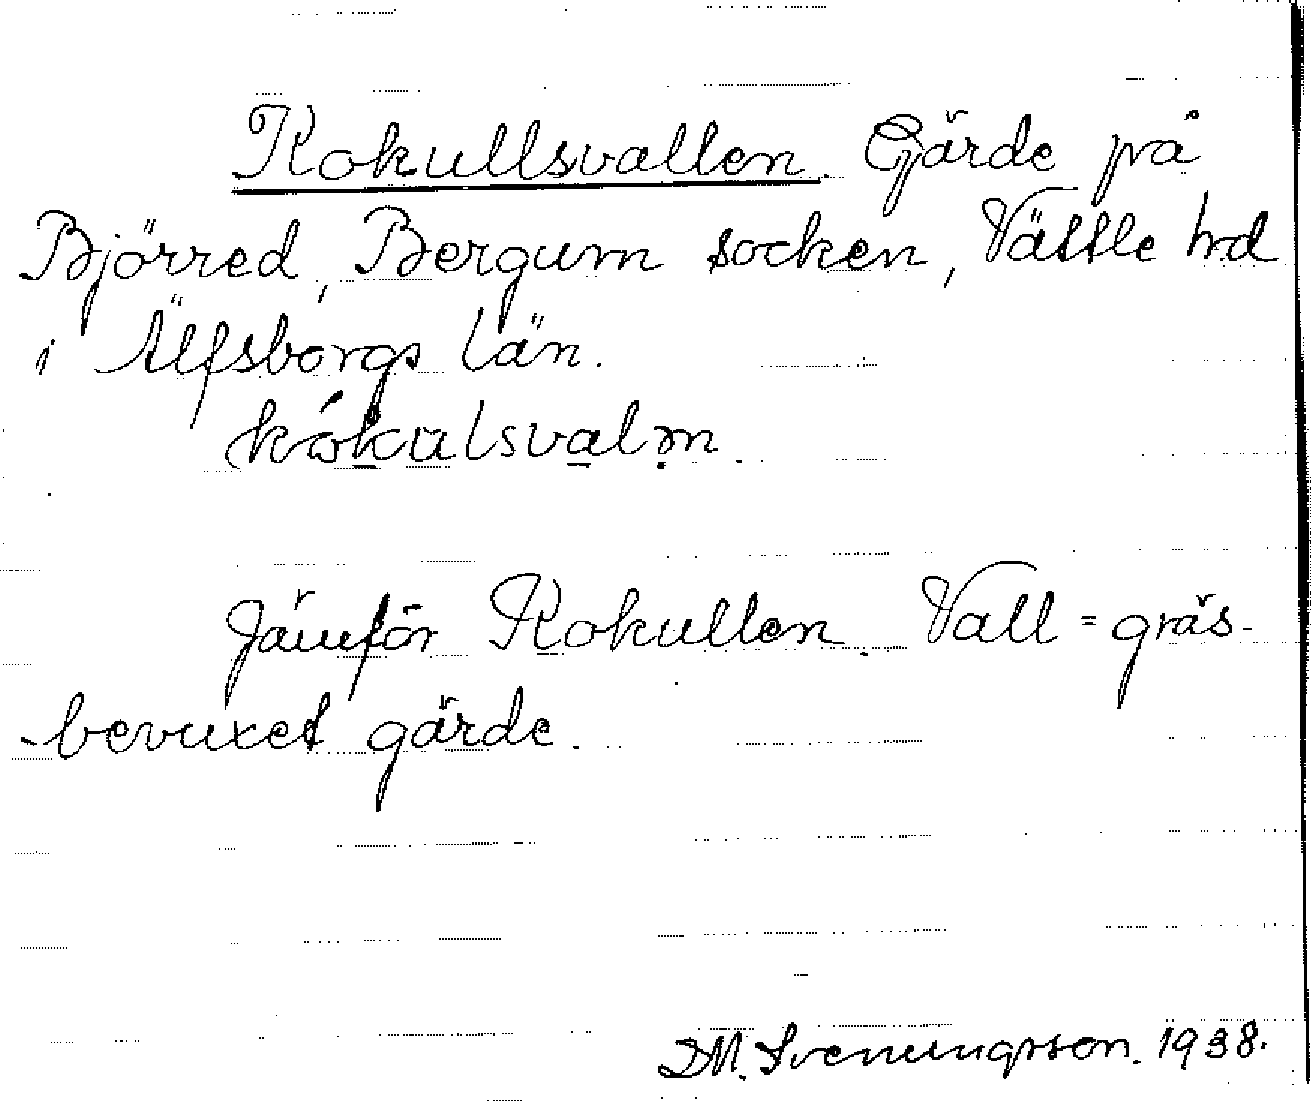 Kokullsvallen. Gärde på
Björred, Bergum socken, Vättle hd
i Älfsborgs län.
kókulsvalm.
Jämför Kokullen. Vall = gräs-
-bevuxet gärde.
D.M. Sveningsson. 1938.